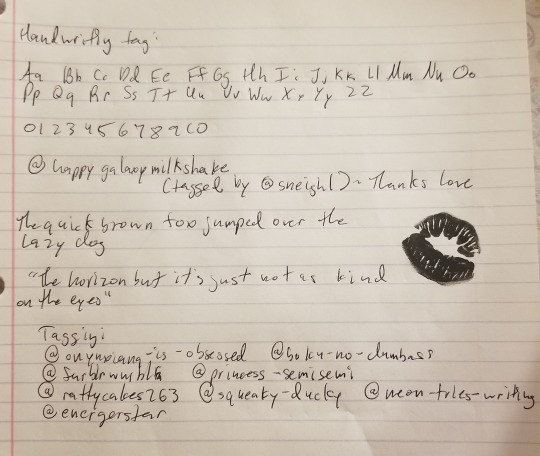 Handwriting tag:
Aa Bb Cc Dd Ee Ff Gg Hh Ii Jj Kk Ll Mm Nn Oo
Pp Qq Rr Ss Tt Uu Vv Ww Xx Yy Zz
0 1 2 3 4 5 6 7 8 9 10
@happygalaxymilkshake
(tagged by @sneighl)~ Thanks love
The quick brown fox jumped over the
lazy dog
"The horizon but it's just not as kind
on the eyes"
Tagging:
@boku-no-dumbass
@princess-semisemi
@rattycakes263 @squeaky-ducky @neon-tries-writing
@energerstar